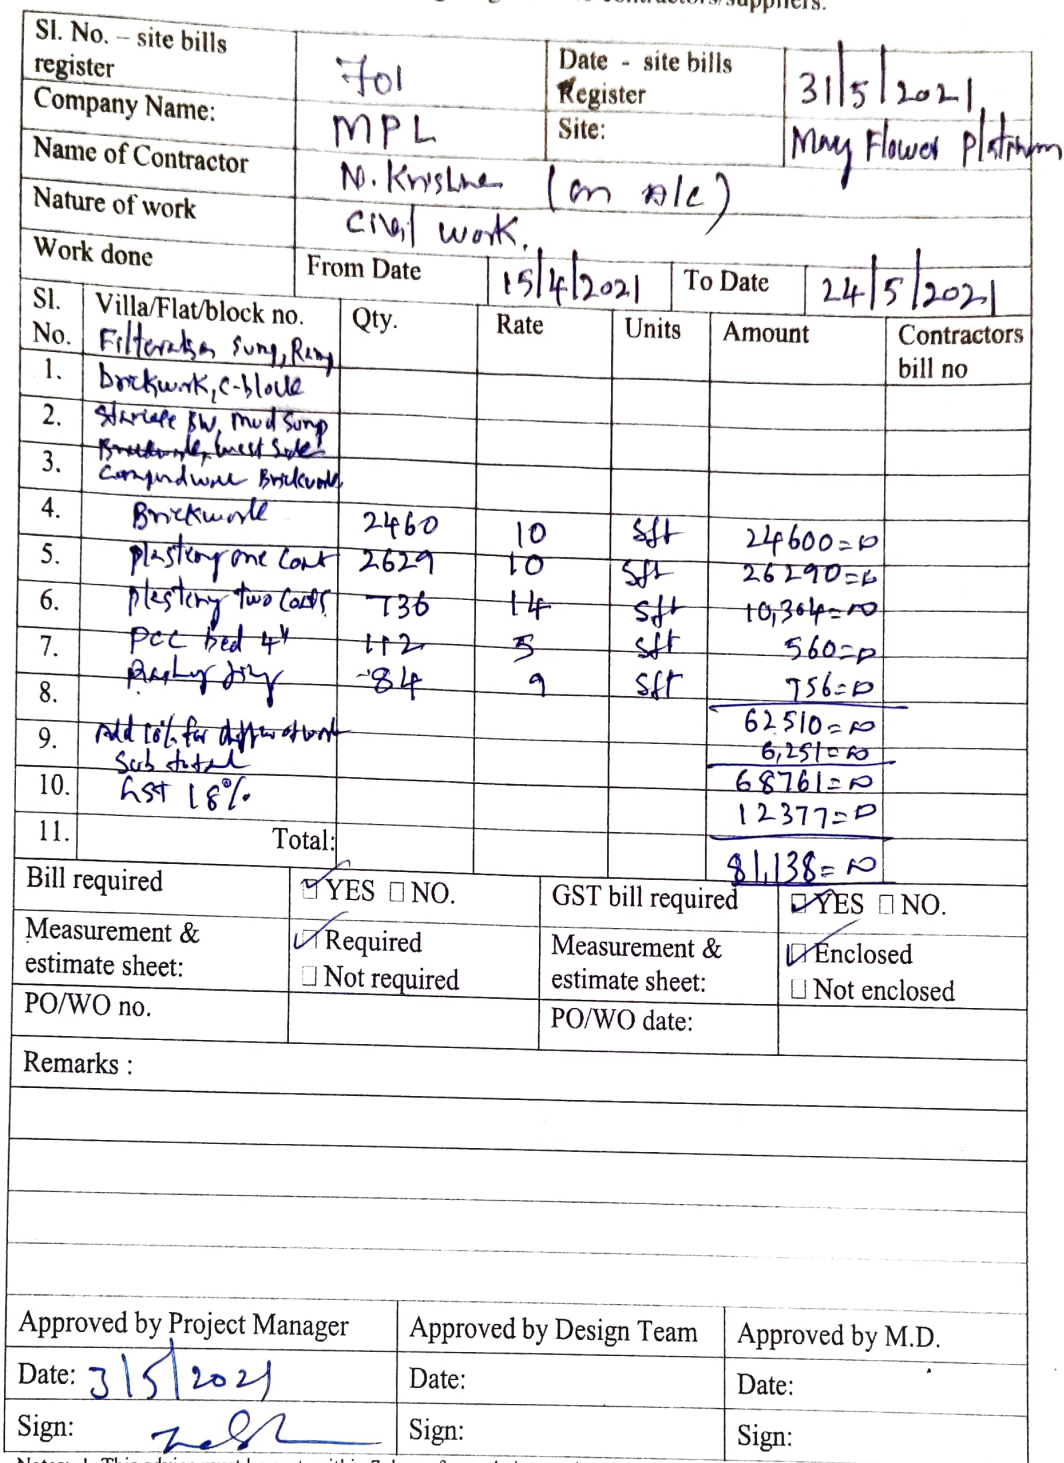 contractors/suppliers.
Sl. No. – site bills register 701 Date - site bills Register 31/5/2021
Company Name: MPL Site: May Flower Platinum
Name of Contractor N. Krishna (on A/c)
Nature of work Civil work.
Work done From Date 15/4/2021 To Date 24/5/2021
Sl. No. Villa/Flat/block no. Qty. Rate Units Amount Contractors bill no
Sump, Ramp
1. brickwork, C-block
2. BW, mud Sump
West Side
3. Brickwork
4. Brickwork 2460 10 sft 24600=00
5. Plastering one Coat 2629 10 sft 26290=00
6. Plastering two Coats 736 14 sft 10,304=00
7. PCC bed 4" 112 5 sft 560=00
8. 84 9 sft 756=00
62510=00
9. Add 10% for work 6,251=00
Sub total 68761=00
10. GST 18% 12377=00
11. Total: 81,138=00
Bill required YES NO. GST bill required YES NO.
Measurement & estimate sheet: Required Not required Measurement & estimate sheet: Enclosed Not enclosed
PO/WO no. PO/WO date:
Remarks :
Approved by Project Manager Approved by Design Team Approved by M.D.
Date: 3/5/2021 Date: Date:
Sign: Sign: Sign: